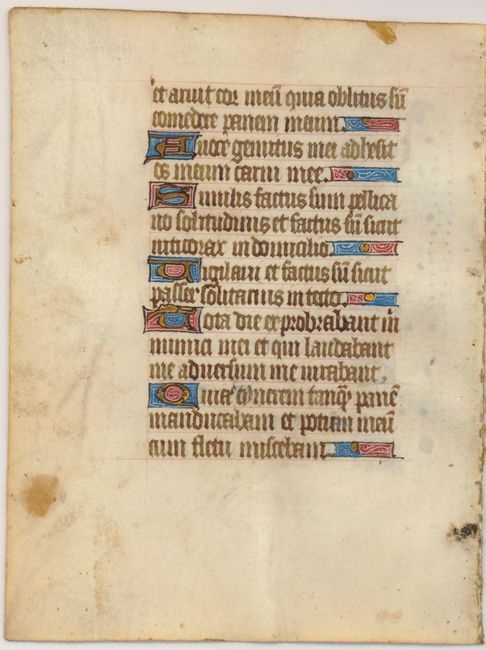 et aruit cor meū quia oblitus sū
comedere panem meum
A uoce gemitus mei adhesit
os meum carni mee.
S imilis factus sum pellica
no solitudinis et factus sū sicut
niticorax in domicilio
V igilaui et factus sū sicut
passer solitarius in tecto.
T ota die exprobrabant in
inimici mei et qui laudabant
me aduersum me iurabant.
Q uia cinerem tanq̄ panē
manducabam et potum meū
cum fletu miscebam